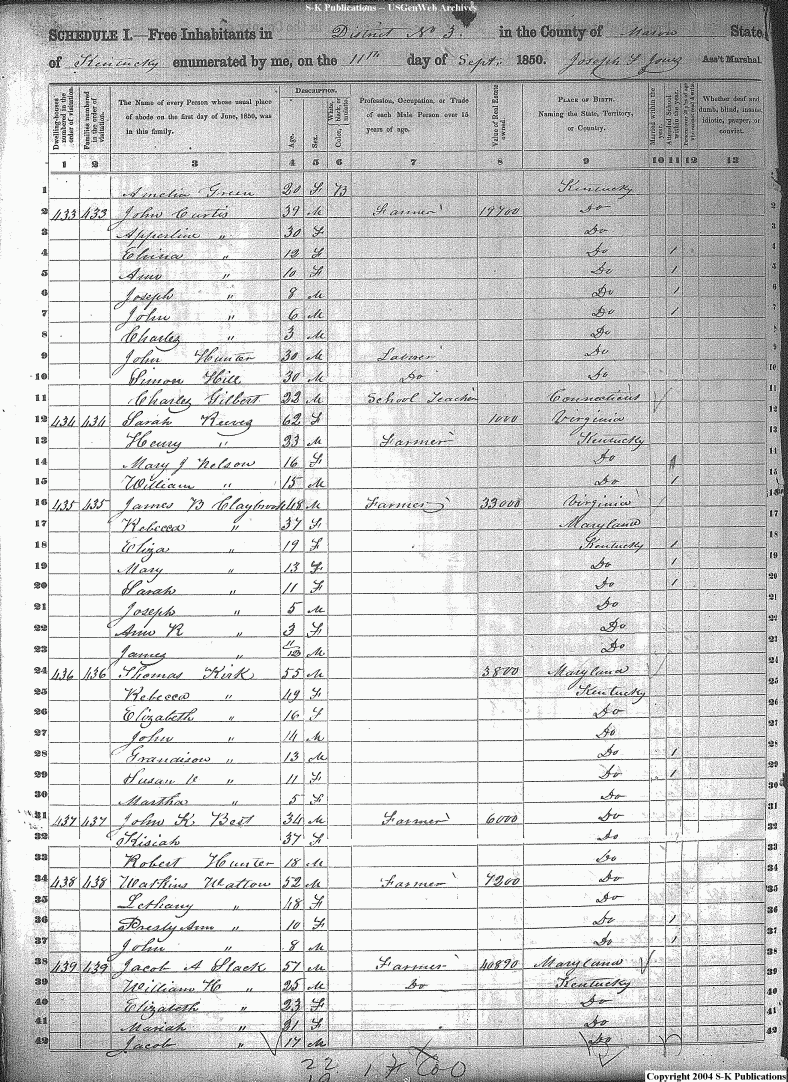 S-K Publications – USGenWeb Archives
SCHEDULE I.—Free Inhabitants in District No 3 in the County of Mason State
of Kentucky enumerated by me, on the 11th day of Sept. 1850. Joseph Ass't Marshal.
Dwelling-houses numbered in the order of visitation.
Families numbered in the order of visitation.
The Name of every Person whose usual place of abode on the first day of June, 1850, was in this family.
DESCRIPTION.
Age.
Sex.
Color, White, black, or mulatto.
Profession, Occupation, or Trade of each Male Person over 15 years of age.
Value of Real Estate owned.
PLACE OF BIRTH. Naming the State, Territory, or Country.
Married within the year.
Attended School within the year.
Whether deaf and dumb, blind, insane, idiotic, pauper, or convict.
1 2 3 4 5 6 7 8 9 10 11 12 13
1 Amelia Green 20 F B Kentucky
2 433 433 John Curtis 39 M Farmer 19700 Do 2
3 " 30 F Do 3
4 " 12 F Do 1 4
5 Ann " 10 F Do 1 5
6 Joseph " 8 M Do 1 6
7 John " 6 M Do 1 7
8 Charles " 3 M Do 8
9 John Hunter 30 M Laborer Do 9
10 Simon Hill 30 M Do Do 10
11 Charles Gilbert 22 M School Teacher Connecticut 11
12 434 434 Sarah 62 F 1000 Virginia 12
13 Henry " 23 M Farmer Kentucky 13
14 Mary J Nelson 16 F Do 14
15 William " 15 M Do 1 15
16 435 435 James B Claybrook 48 M Farmer 33000 Virginia 16
17 Rebecca " 37 F Maryland 17
18 Eliza " 19 F Kentucky 1 18
19 Mary " 13 F Do 1 19
20 Sarah " 11 F Do 1 20
21 Joseph " 5 M Do 21
22 Ann R " 3 F Do 22
23 James " 11/12 M Do 23
24 436 436 Thomas Kirk 55 M 3800 Maryland 24
25 Rebecca " 49 F Kentucky 25
26 Elizabeth " 16 F Do 26
27 John " 14 M Do 27
28 Grandison " 13 M Do 1 28
29 Susan " 11 F Do 1 29
30 Martha " 5 F Do 30
31 437 437 John K Best 34 M Farmer 6000 Do 31
32 Kisiah 37 F Do 32
33 Robert Hunter 18 M Do 33
34 438 438 Watkins Watson 52 M Farmer 7200 Do 34
35 Lethany " 48 F Do 35
36 Presly Ann " 10 F Do 1 36
37 John " 8 M Do 1 37
38 439 439 Jacob A Slack 57 M Farmer 40890 Maryland 38
39 William H " 25 M Do Kentucky 39
40 Elizabeth " 23 F Do 40
41 Mariah " 21 F Do 41
42 Jacob " 17 M Do 42
22
Copyright 2004 S-K Publications